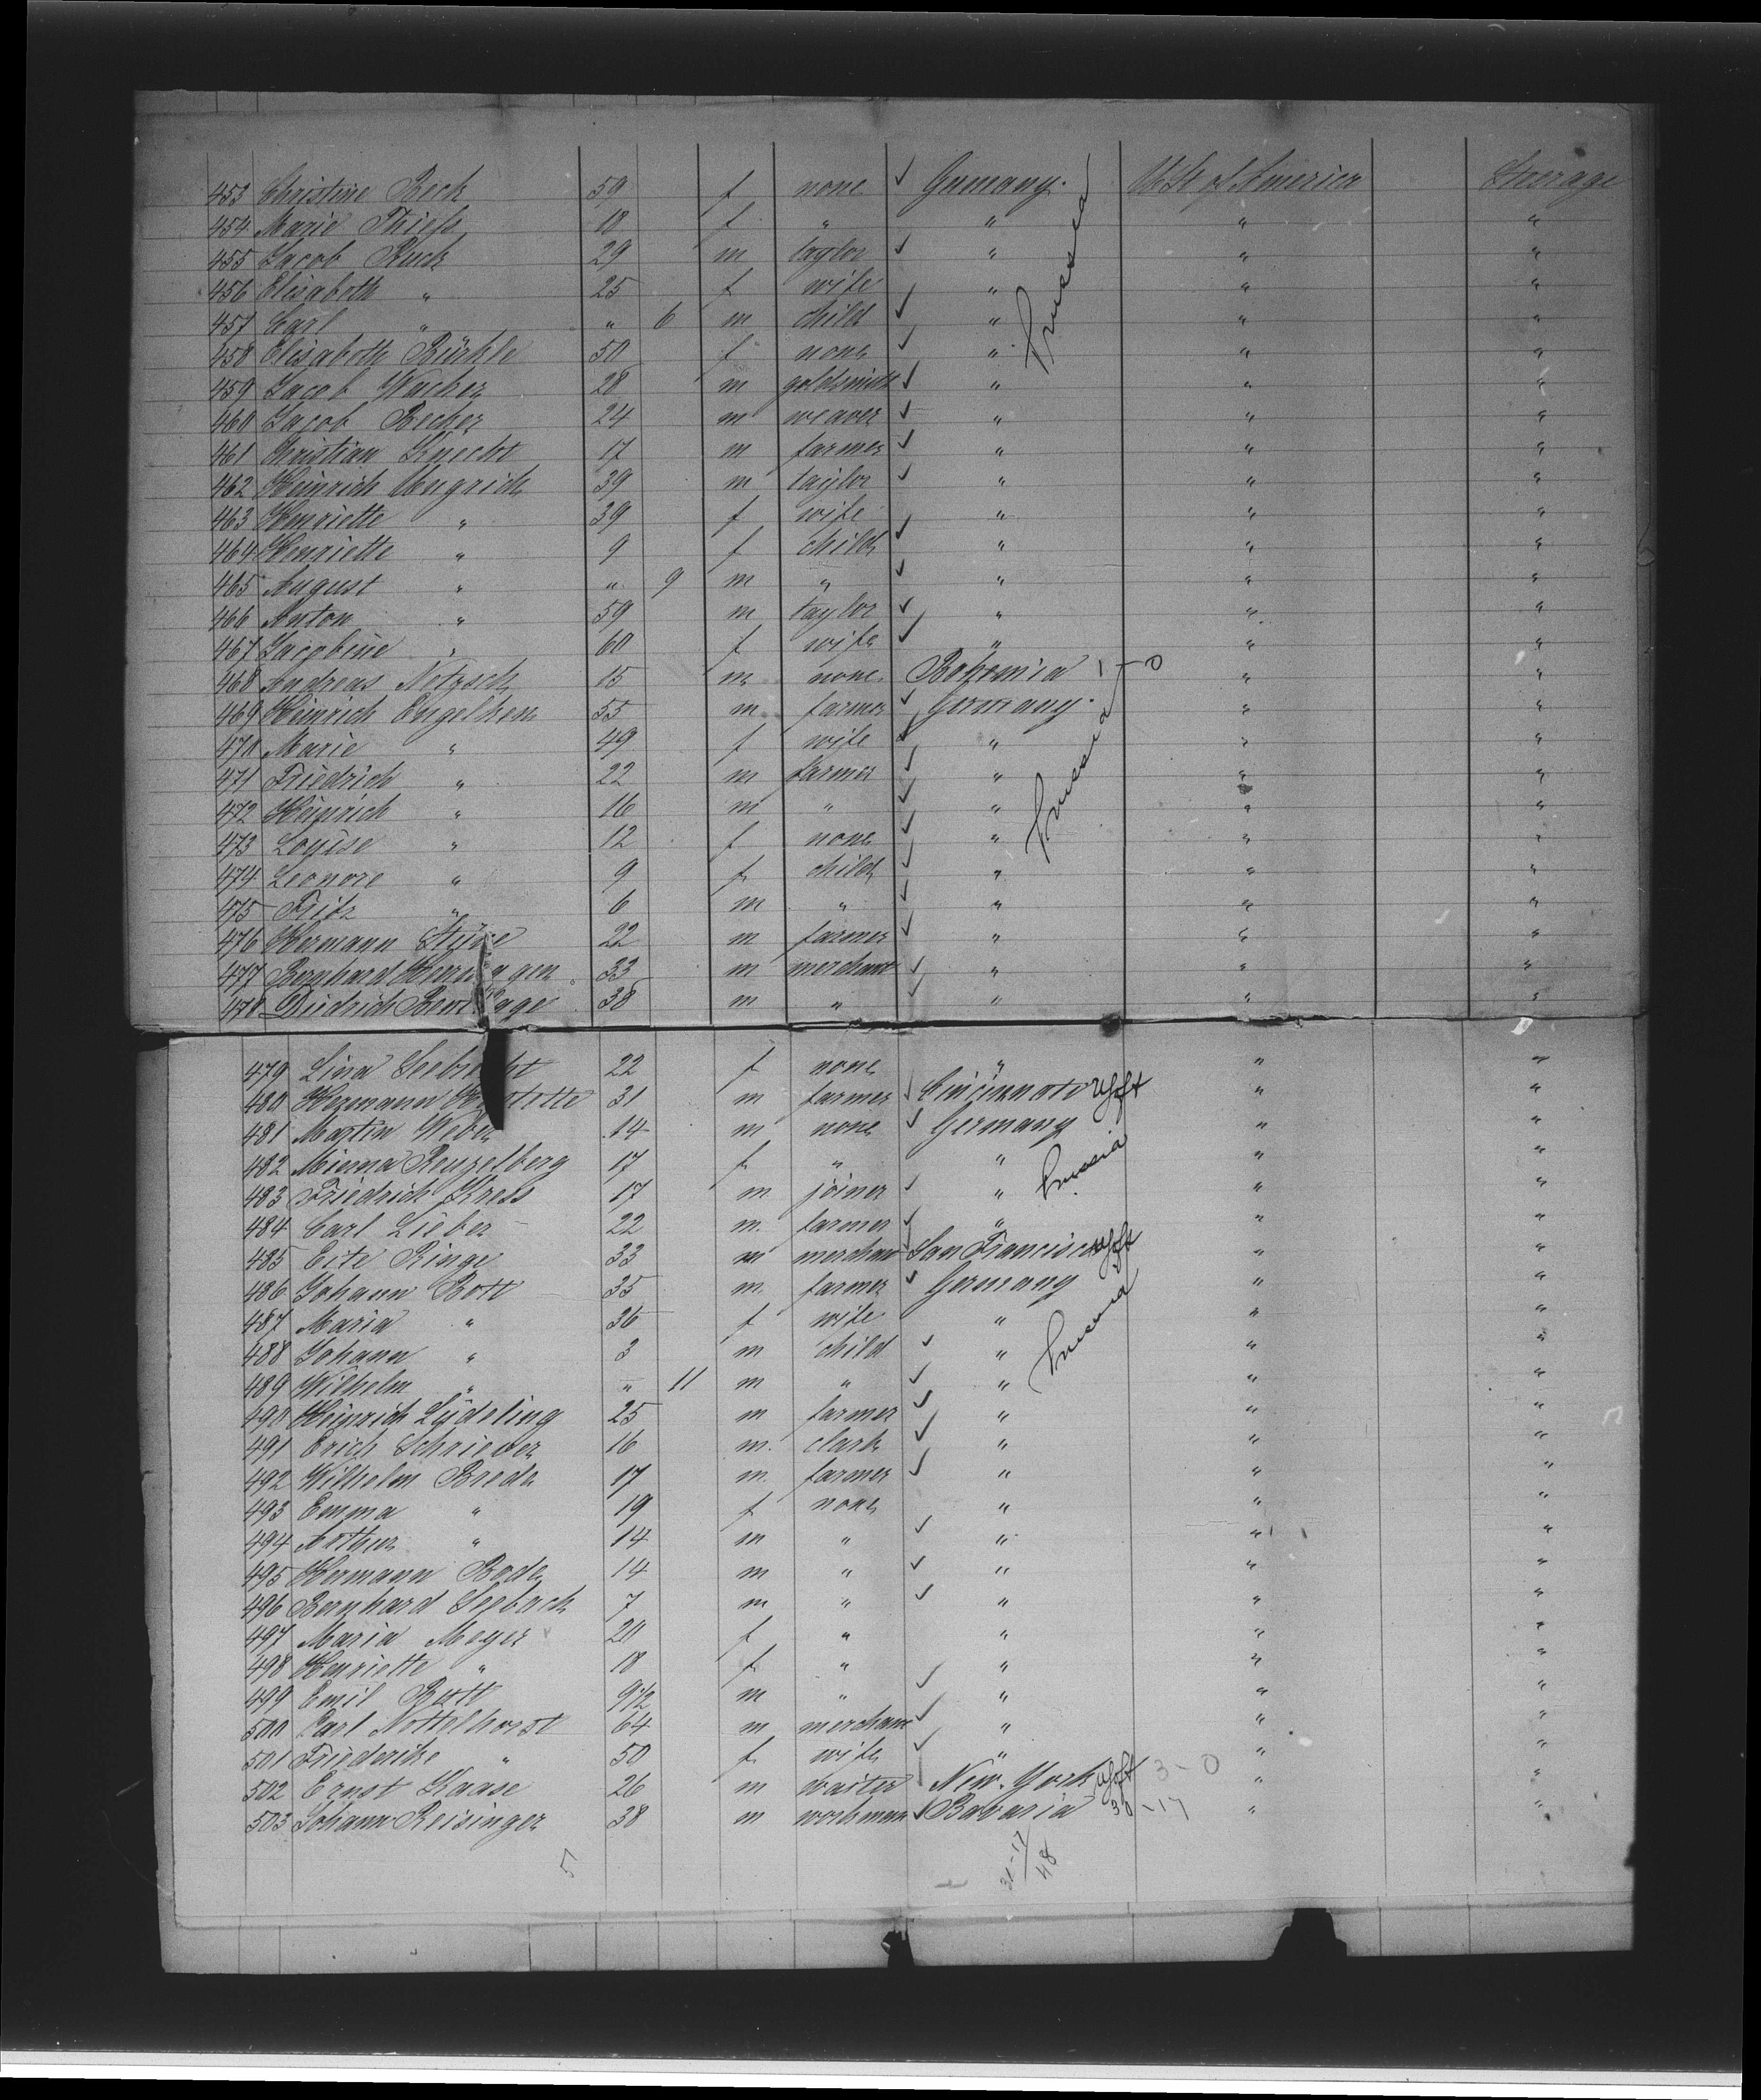 453 Christine Beck 59 f none ✓ Germany. U. St. of America Steerage
454 Marie Thiess 18 f " " " "
455 Jacob Ruck 29 m taylor ✓ " " "
456 Elisabeth " 25 f wife " " "
457 Carl " " 6 m child ✓ " " "
Prussia
458 Elisabeth Bürkle 50 f none ✓ " " "
459 Jacob Wacker 28 m goldsmith ✓ " " "
460 Jacob Becker 24 m weaver ✓ " " "
461 Christian Knecht 17 m farmer ✓ " " "
462 Heinrich Ungrich 39 m taylor ✓ " " "
463 Henriette " 39 f wife " " "
464 Henriette " 9 f child ✓ " " "
465 August " " 9 m " ✓ " " "
466 Anton " 59 m taylor ✓ " " "
467 Jacobine " 60 f wife ✓ " " "
468 Andreas Netzsch 15 m none Bohemia 1-0 " "
469 Heinrich Engelken 55 m farmer ✓ Germany. " "
470 Marie " 49 f wife ✓ " " "
471 Friedrich " 22 m farmer ✓ " " "
472 Heinrich " 16 m " ✓ " " "
Prussia
473 Louise " 12 f none ✓ " " "
474 Leonore " 9 f child ✓ " " "
475 Fritz " 6 m " ✓ " " "
476 Hermann Stüve 22 m farmer ✓ " " "
477 Bernhard 33 m merchant ✓ " " "
478 Diedrich 38 m " ✓ " " "
479 Lina 22 f none " " "
480 Hermann 31 m farmer ✓ Cincinnati " "
481 Martin Weber 14 m none ✓ Germany " "
482 Minna Renzelberg 17 f " " " "
Prussia
483 Friedrich Kress 17 m joiner ✓ " " "
484 Carl Lieber 22 m. farmer ✓ " " "
485 Ringe 33 m merchant San Francisco " "
486 Johann Bott 35 m. farmer ✓ Germany " "
487 Maria " 36 f wife " " "
Prussia
488 Johann " 3 m child ✓ " " "
489 Wilhelm " " 11 m " ✓ " " "
490 Heinrich Lydeling 25 m farmer ✓ " " "
491 Erich Schriever 16 m. clark ✓ " " "
492 Wilhelm Brede 17 m. farmer ✓ " " "
493 Emma " 19 f none " " "
494 Arthur " 14 m " ✓ " " "
495 Hermann Bode 14 m " ✓ " " "
496 Bernhard Seebach 7 m " ✓ " " "
497 Maria Meyer 20 f " " " "
498 Henriette " 18 f " ✓ " " "
499 Emil 9 1/2 m " ✓ " " "
500 Carl Nottelhorst 64 m merchant ✓ " " "
501 Friederike " 50 f wife ✓ " " "
502 Ernst Haase 26 m waiter New-York 3-0 " "
503 Johann Reisinger 38 m workman ✓ Bavaria 30-17 " "
51
31-17
48